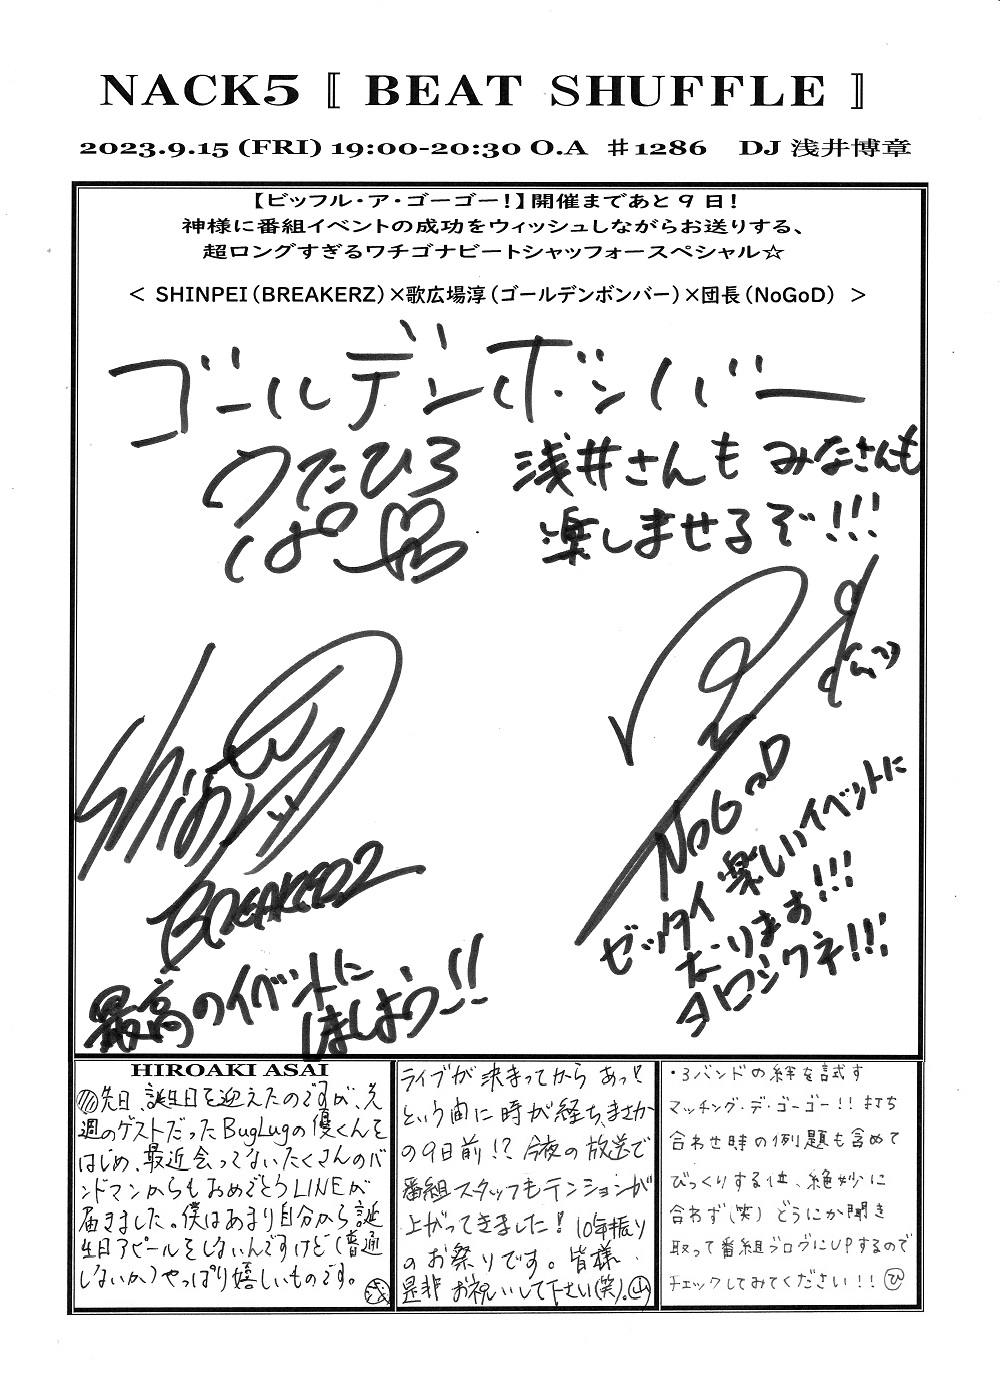 NACK5 〚 BEAT SHUFFLE 〛
2023.9.15 (FRI) 19:00-20:30 O.A ♯1286 DJ 浅井博章
【ビッフル・ア・ゴーゴー!】開催まであと 9 日!
神様に番組イベントの成功をウィッシュしながらお送りする、
超ロングすぎるワチゴナビートシャッフォースペシャル☆
< SHINPEI（BREAKERZ）×歌広場淳（ゴールデンボンバー）×団長（NoGoD） >
ゴールデンボンバー
うたひろ
ぱ
浅井さんも みなさんも
楽しませるぞ!!!
Shinpei
BREAKERZ
最高のイベントに
しましょう!!
NoGoD
ゼッタイ 楽しいイベントに
なりまぁ!!!
ヨロシクネ!!!
HIROAKI ASAI
先日、誕生日を迎えたのですが、先
週のゲストだったBugLugの優くんを
はじめ、最近会ってないたくさんのバ
ンドマンからもおめでとうLINEが
届きました。僕はあまり自分から誕
生日アピールをしないんですけど(普通
しないか)やっぱり嬉しいものです。
ライブが決まってから あっ!
という間に時が経ち、まさか
の9日前!? 今夜の放送で
番組スタッフもテンションが
上がってきました! 10年振り
のお祭りです。皆様、
是非 お祝いして下さい(笑)。山
・3バンドの絆を試す
マッチング・デ・ゴーゴー!! 打ち
合わせ時の例題も含めて
びっくりする位、絶妙に
合わず(笑) どうにか聞き
取って番組ブログにUPするので
チェックしてみてください!! ひ